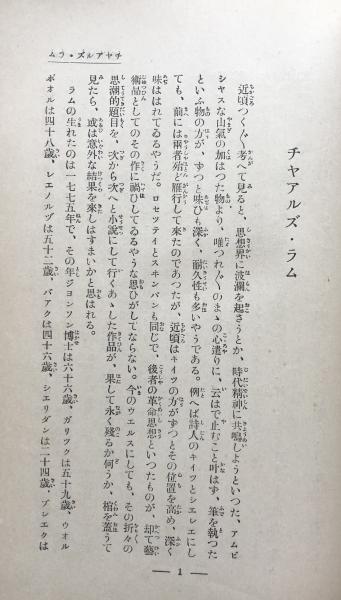 チヤアルズ・ラム
チャアルズ・ラム
近頃つく〴〵考へて見ると、思想界に波瀾を起さうとか、時代精神に共鳴しようといつた、アムビ
シヤスな山氣の加はつた物より、唯つれ〴〵のまゝの心遣りに、云はで止むこと叶はず、筆を執つた
といふ物の方が、ずつと味ひも深く、耐久性も多いやうである。例へば詩人のキイツとシエレエにし
ても、前には兩者殆ど雁行して來たのであつたが、近頃はキイツの方がずつとその位置を高め、深く
味ははれてゐるやうだ。ロセツテイとスヰンバンも同じで、後者の革命思想といつたものが、却て藝
術品としてのその作に禍ひしてゐるやうな思ひがしてならない。今のウエルスにしても、その折々の
思潮的題目を、次から次へと小説にして行くあゝした作品が、果して永く殘るか何うか、棺を蓋うて
見たら、或は意外な結果を來しはすまいかと思はれる。
ラムの生れたのは一七七五年で、その年ジヨンソン博士は六十六歳、ガリツクは五十九歳、ウオル
ポオルは四十八歳、レエノルヅは五十二歳、バアクは四十六歳、シエリダンは二十四歳、ブレエクは
— 1 —